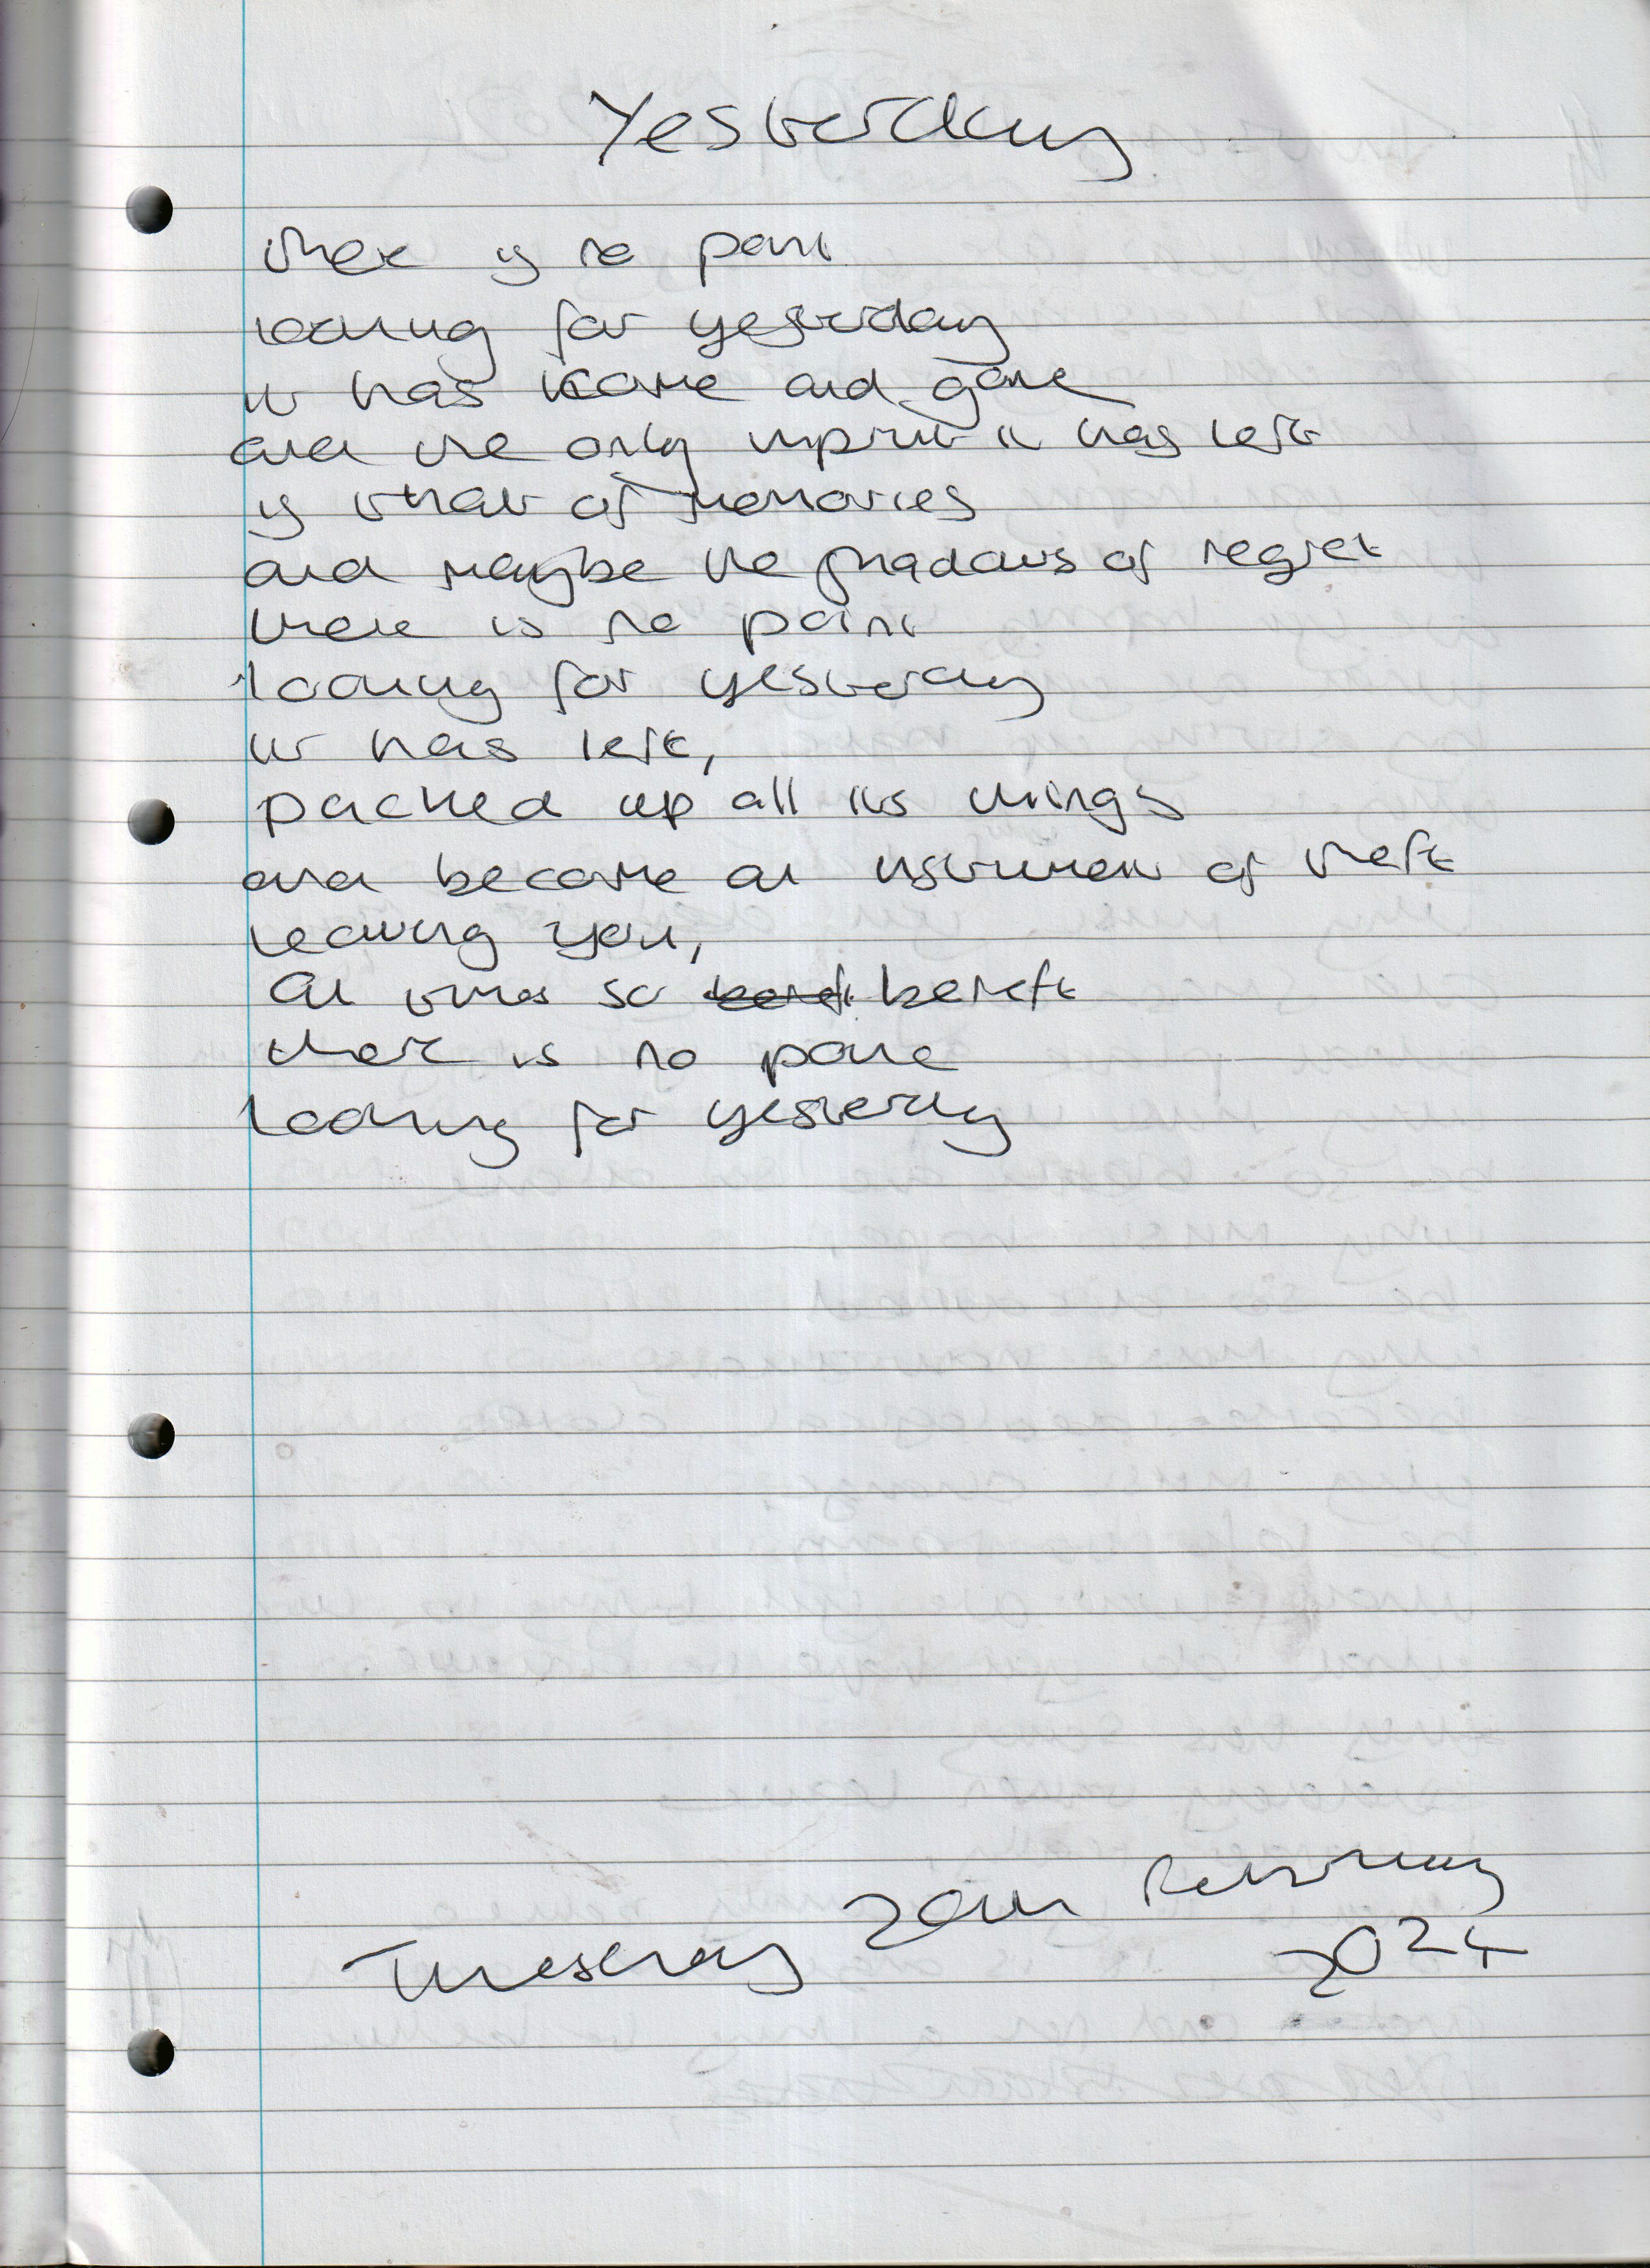 Yesterday
there is no point
looking for yesterday
it has come and gone
and the only imprint it has left
is that of memories
and maybe the shadows of regret
there is no point
looking for yesterday
it has left,
packed up all its things
and become an instrument of theft
leaving you,
at times so bereft
there is no point
looking for yesterday
Tuesday 20th February
2024